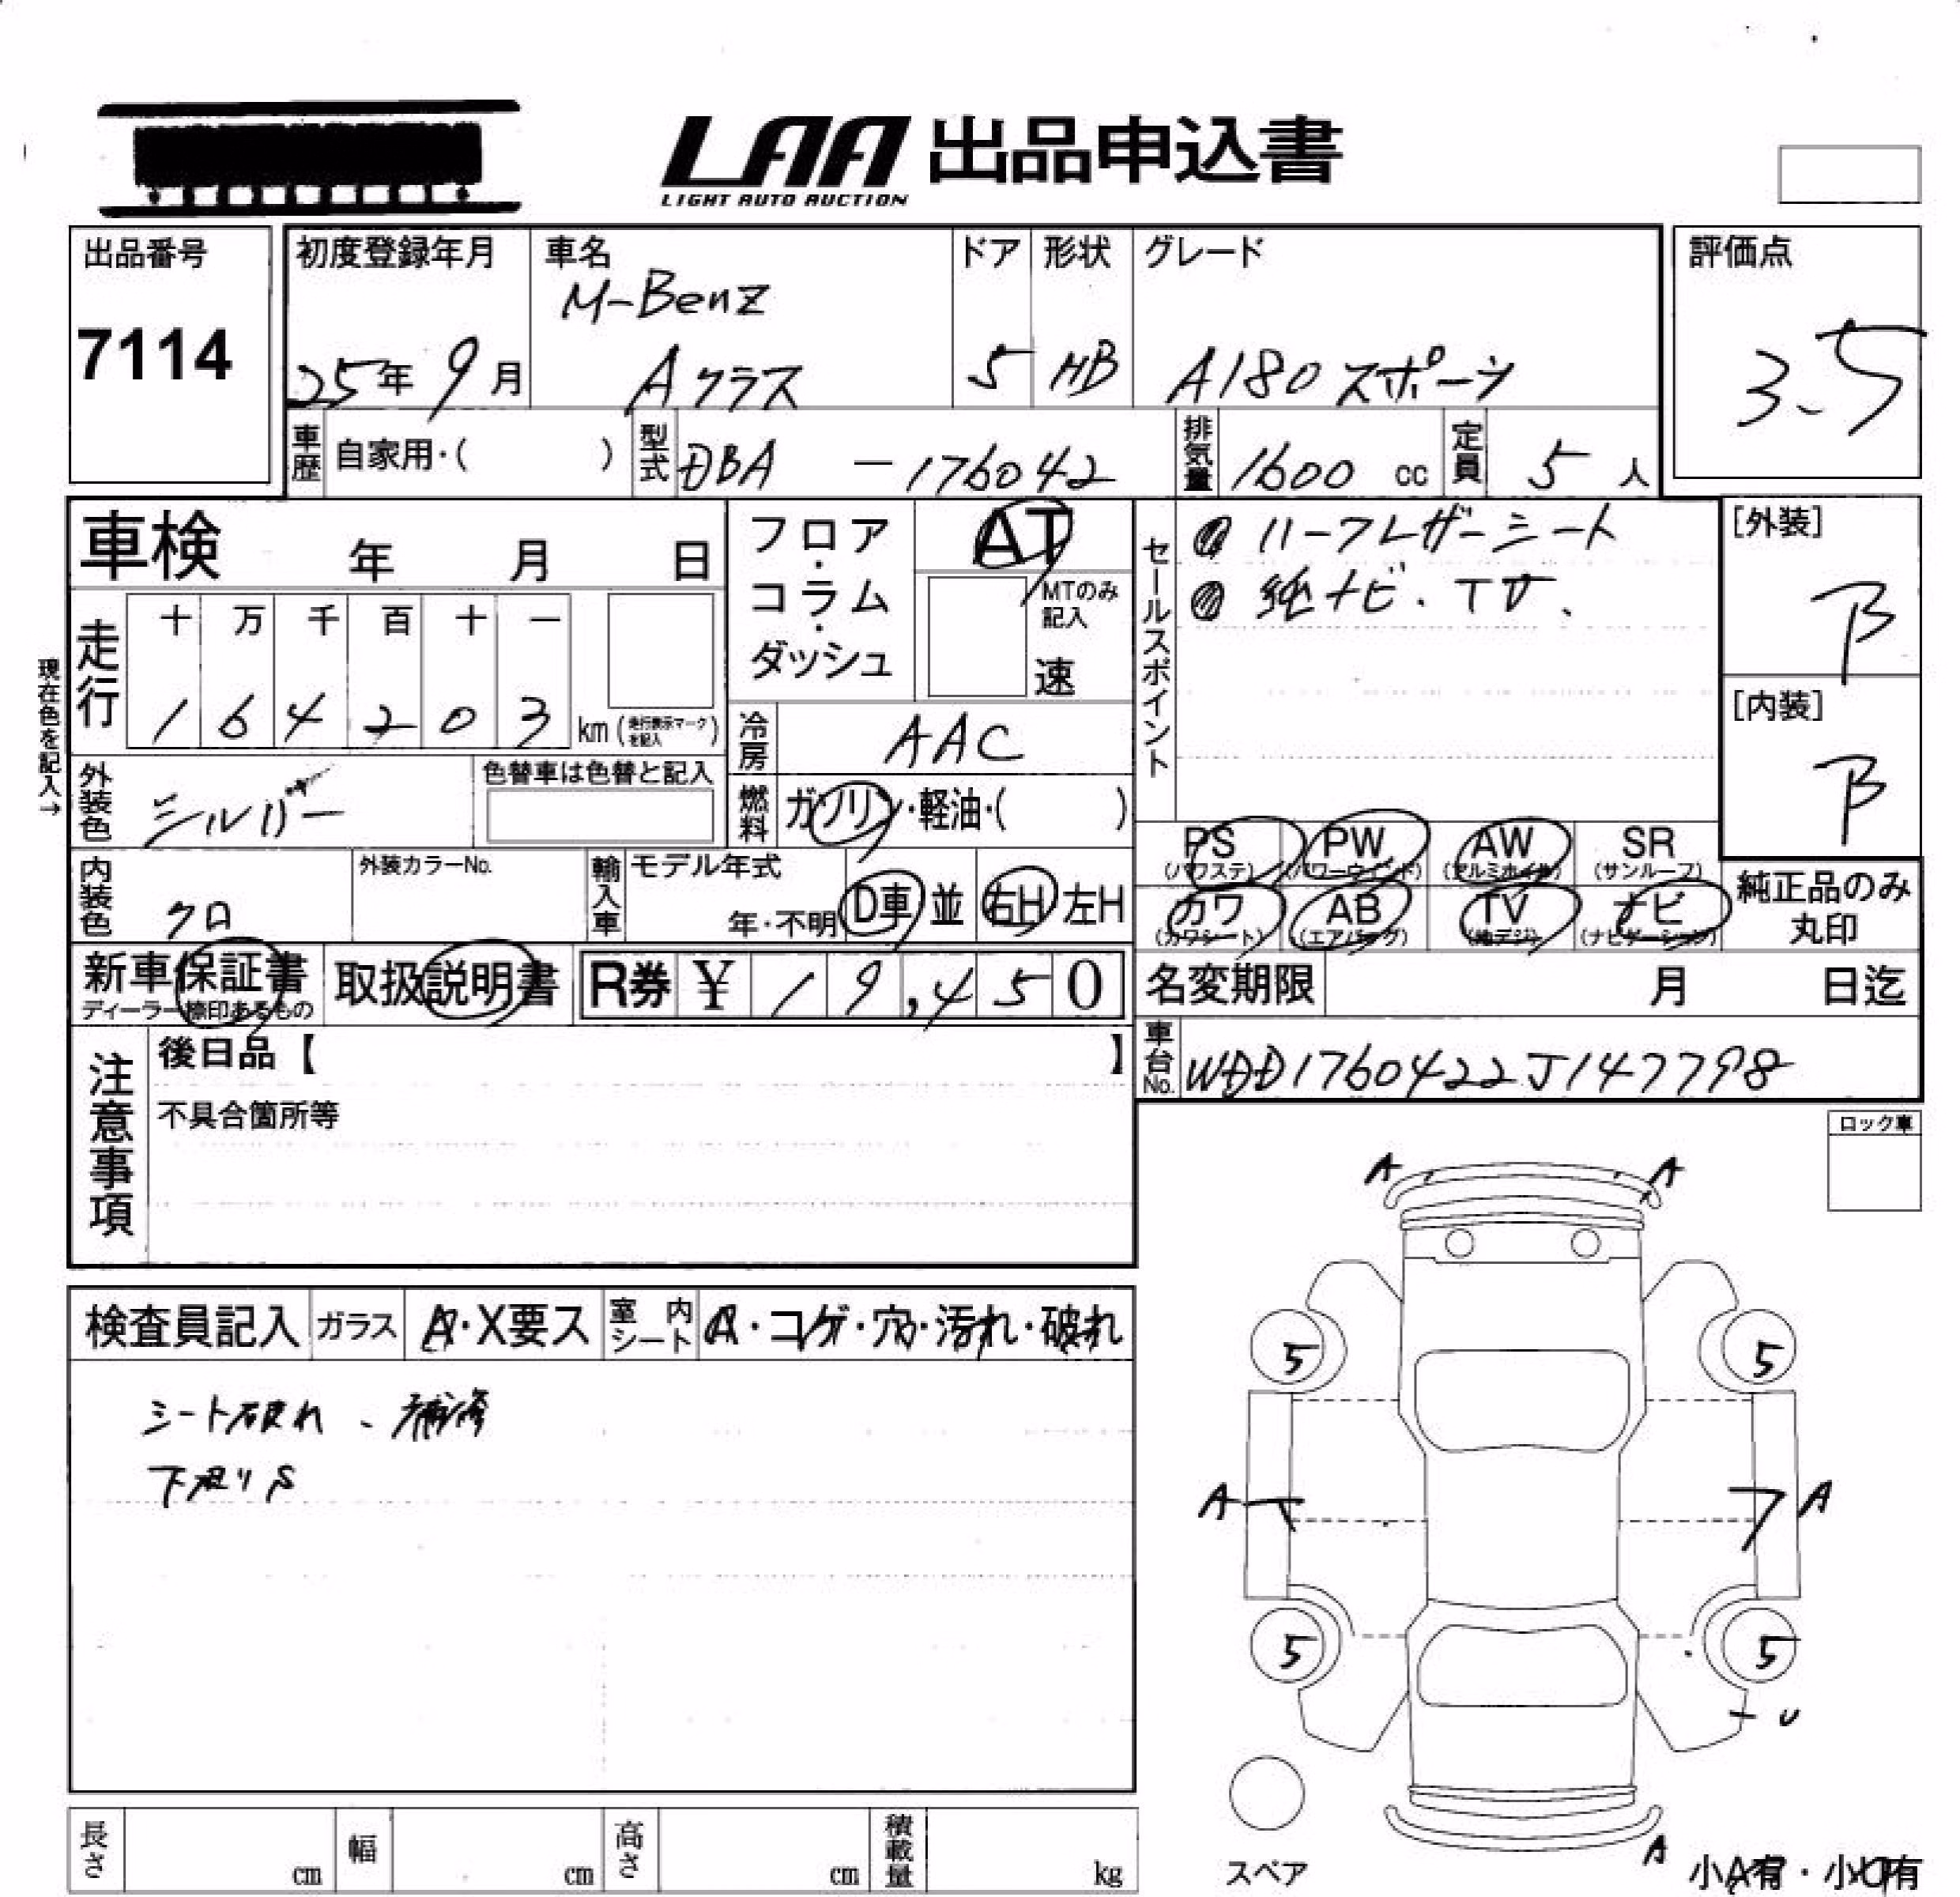 LAA 出品申込書
LIGHT AUTO AUCTION
出品番号
7114
初度登録年月
25年 9月
車名
M-Benz
Aクラス
ドア
5
形状
HB
グレード
A180 スポーツ
評価点
3.5
車歴 自家用・( )
型式 DBA - 176042
排気量 1600 cc
定員 5 人
車検 年 月 日
現在色を記入→
走行
十 万 千 百 十 一
1 6 4 2 0 3 km (走行表示マークを記入)
外装色 シルバー
色替車は色替と記入
内装色 クロ
外装カラーNo.
フロア・コラム・ダッシュ
AT
MTのみ記入
速
冷房 AAC
燃料 ガソリン・軽油・( )
輸入車 モデル年式
年・不明 D車 並 右H 左H
セールスポイント
ハーフレザーシート
純ナビ.TV.
[外装]
B
[内装]
B
PS (パワステ) PW (パワーウインド) AW (アルミホイル) SR (サンルーフ)
カワ (カワシート) AB (エアバッグ) TV (地デジ) ナビ (ナビゲーション)
純正品のみ丸印
新車保証書
ディーラー捺印あるもの
取扱説明書
R券 ¥ 19,450
名変期限 月 日迄
車台No. WDD1760422J147798
注意事項
後日品【 】
不具合箇所等
ロック車
検査員記入 ガラス A・X要ス 室内シート A・コゲ・穴・汚れ・破れ
シート破れ、補修
下廻りS
A A
5 5
A A
5 5
U
A
スペア
小A有・小U有
長さ cm 幅 cm 高さ cm 積載量 kg